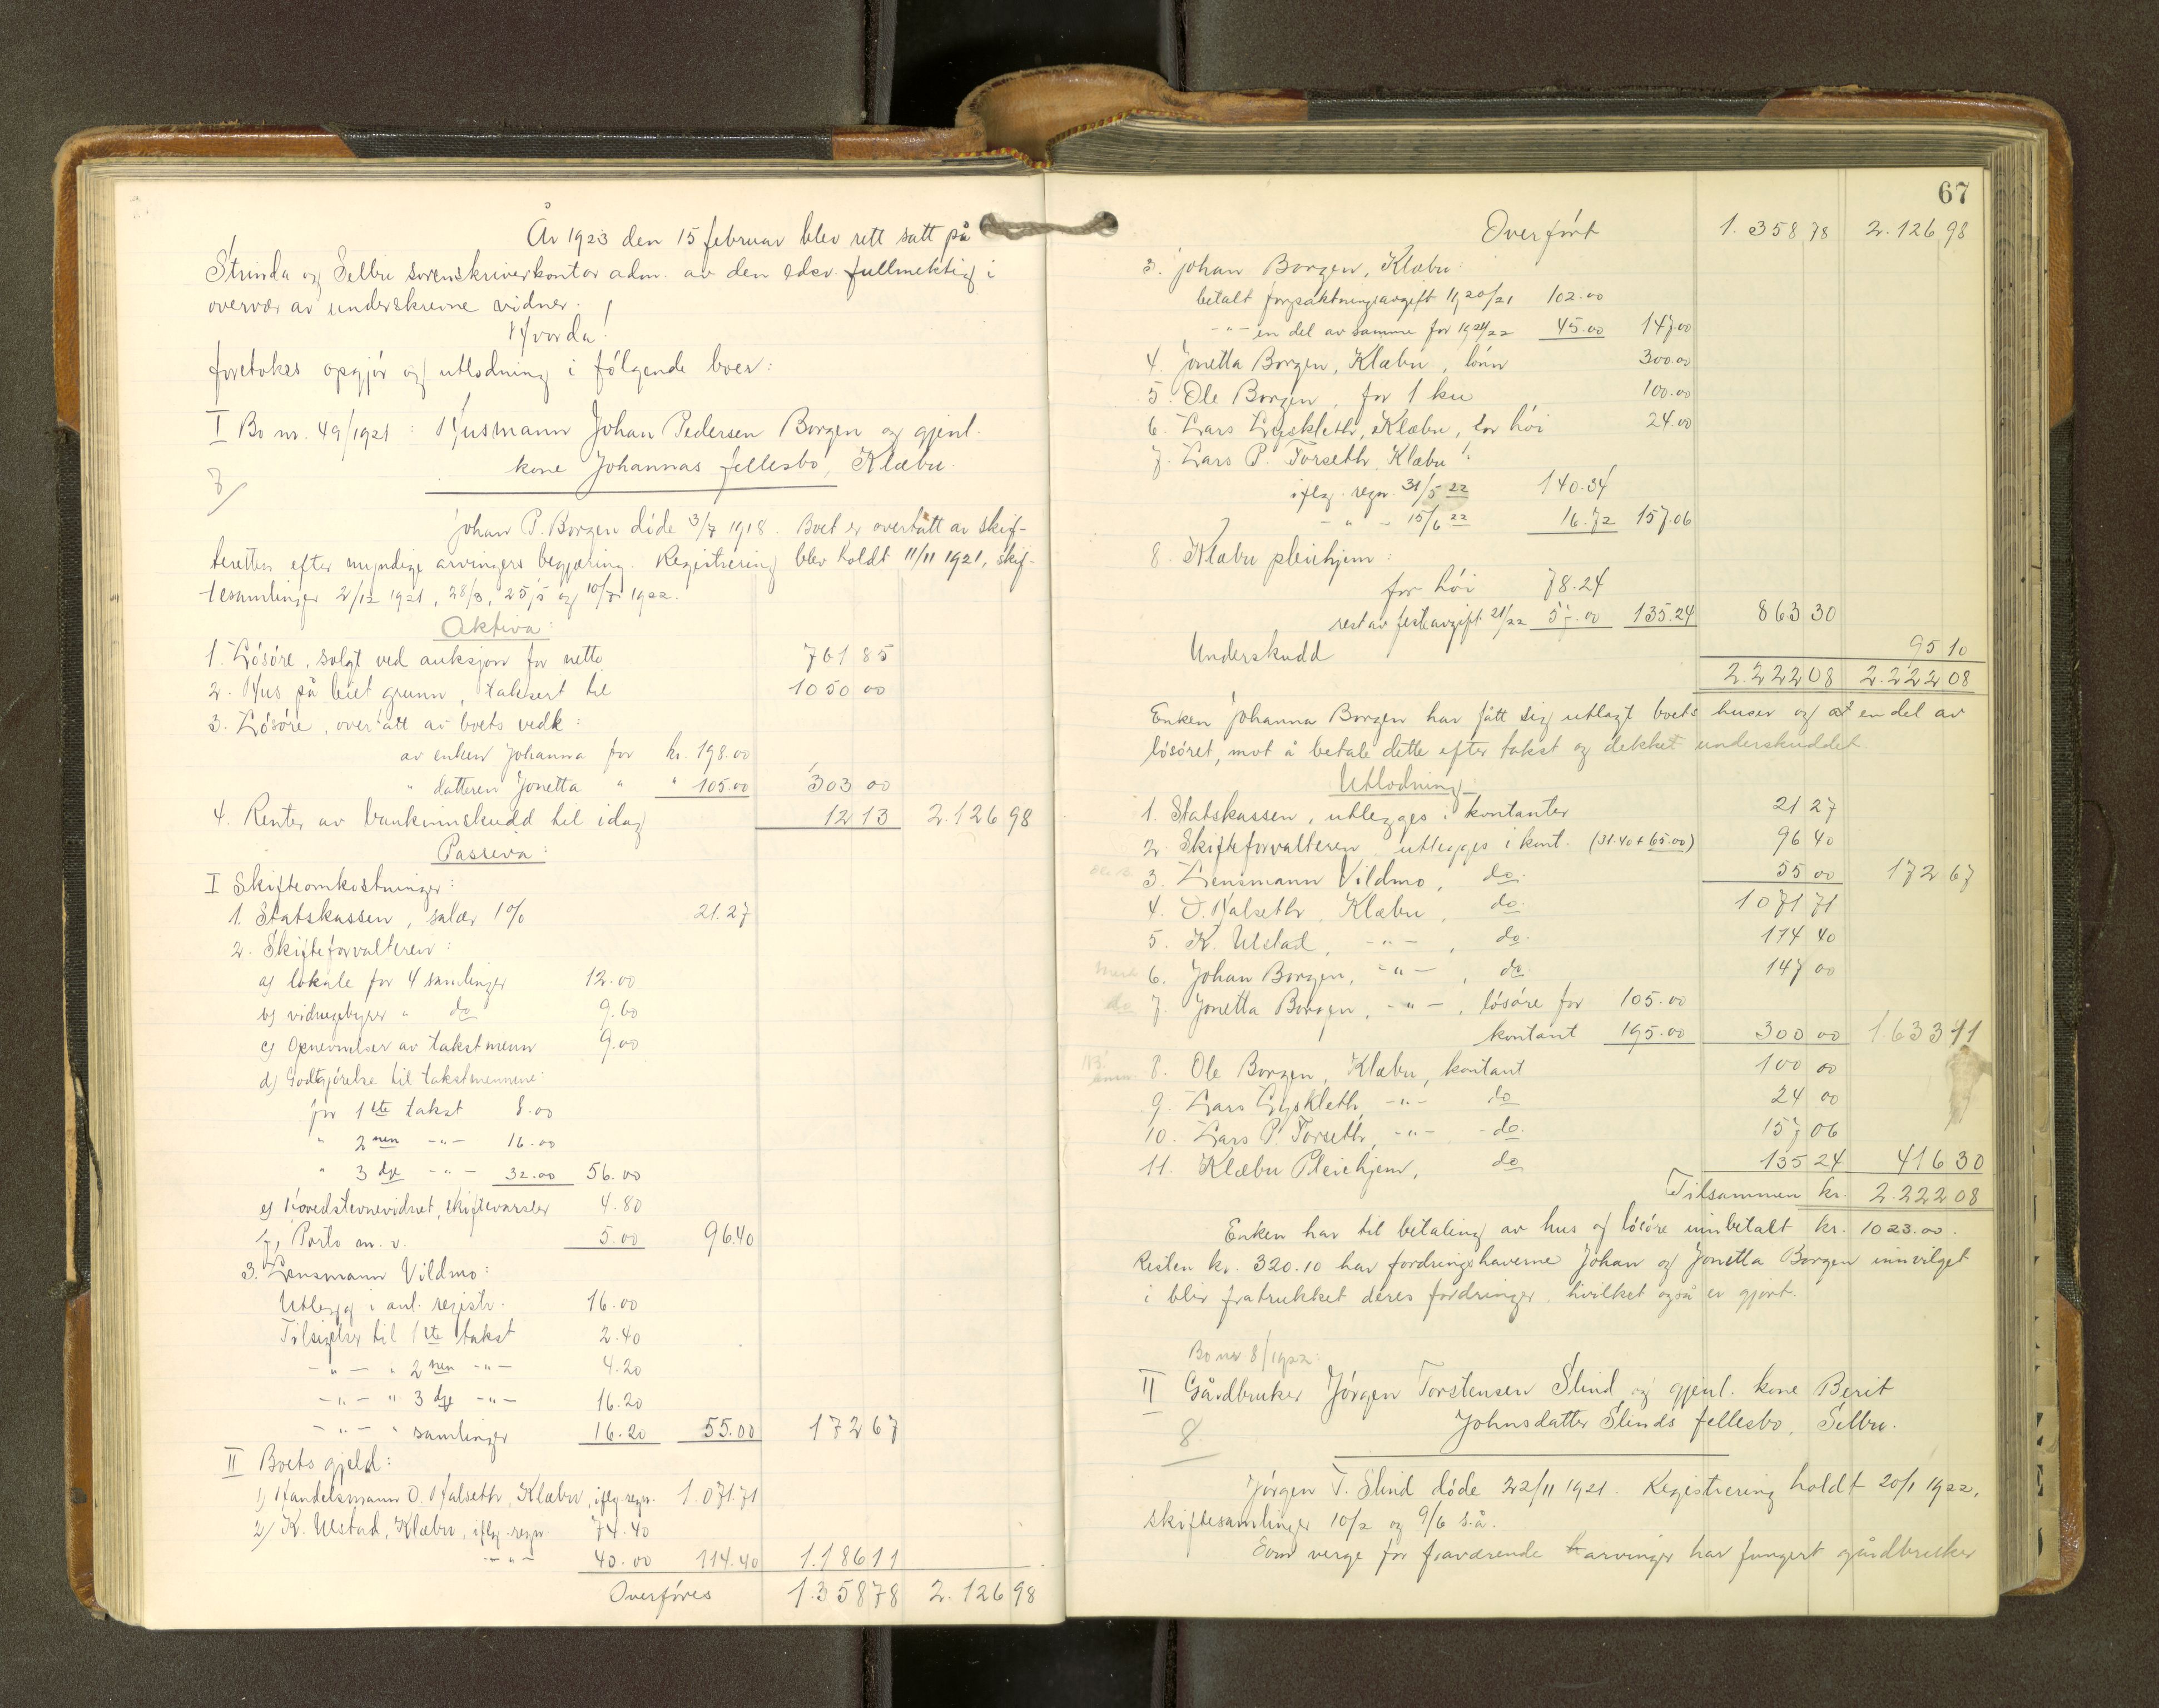 År 1923 den 15 februar blev rett satt på
Strinda og Selbu sorenskriverkontor adm. av den edsv. fullmektig i
overvær av underskrevne vidner.
Hvorda!
foretokes opgjør og utlodning i følgende boer:
I Bo nr. 49/1921 : Husmann Johan Pedersen Borgen og gjenl.
kone Johannas fellesbo, Klæbu.
8/
Johan P. Borgen døde 3/7 1918. Boet er overtatt av skif-
teretten efter myndige arvingers begjæring. Registrering blev holdt 11/11 1921, skif-
tesamlinger 2/12 1921, 28/3, 25/5 og 10/7 1922.
Aktiva:
1. Løsøre, solgt ved auksjon for netto 761 85
2. Hus på leiet grunn, taksert til 1050 00
3. Løsøre, overtatt av boets vedk:
av enken Johanna for kr. 198.00
" datteren Jonetta " " 105.00 303 00
4. Renter av bankinnskudd til idag 12 13 2.126 98
Passiva:
I Skifteomkostninger:
1. Statskassen, salær 1% 21.27
2. Skifteforvalteren:
a) lokale for 4 samlinger 12.00
b) vidnegebyrer " do 9.60
c) Opnevnelser av takstmenn 9.00
d) Godtgjørelse til takstmennene:
for 1ste takst 8.00
" 2nen -"- 16.00
" 3dje -"- 32.00 56.00
e) Hovedstevnevidnet, skiftevarsler 4.80
f) Porto m. v. 5.00 96.40
3. Lensmann Vildmo:
Utlegg i anl. registr. 16.00
Tilsigelser til 1ste takst 2.40
-"- " 2nen -"- 4.20
-"- " 3dje -"- 16.20
-"- " samlinger 16.20 55.00 172 67
II Boets gjeld:
1) Handelsmann O. Halseth, Klæbu, iflg. regn. 1.071.71
2) K. Ulstad, Klæbu, iflg. regn. 74.40
-"- 40.00 114.40 1.186 11
Overføres 1.358 78 2.126 98
67
Overført 1.358 78 2.126 98
3. Johan Borgen, Klæbu:
betalt forpaktningsavgift 1920/21 102.00
-"- en del av samme for 1921/22 45.00 147.00
4. Jonetta Borgen, Klæbu, lønn 300.00
5. Ole Borgen, for 1 ku 100.00
6. Lars Lyskleth, Klæbu, for høi 24.00
7. Lars P. Forseth, Klæbu:
iflg. regn. 31/5 22 140.34
-"- 15/6 22 16.72 157.06
8. Klæbu pleiehjem:
for høi 78.24
rest av festeavgift 21/22 57.00 135.24 863 30
Underskudd 95 10
2.222 08 2.222 08
Enken Johanna Borgen har fått sig utlagt boets huser og en del av
løsøret, mot å betale dette efter takst og dekket underskuddet
Utlodning
1. Statskassen, utlegges i kontanter 21 27
2. Skifteforvalteren utlegges i kont. (31.40 + 65.00) 96 40
3. Lensmann Vildmo, do. 55 00 172 67
4. O. Halseth, Klæbu, do. 1071 71
5. K. Ulstad, -"-, do. 114 40
6. Johan Borgen, -"-, do. 147 00
7. Jonetta Borgen, -"-, løsøre for 105.00
kontant 195.00 300 00 1.633 11
8. Ole Borgen, Klæbu, kontant 100 00
9. Lars Lyskleth, -"- do 24 00
10. Lars P. Forseth, -"- do. 157 06
11. Klæbu Pleiehjem, do 135 24 416 30
Tilsammen kr. 2.222 08
Enken har til betaling av hus og løsøre innbetalt kr. 1023.00.
Resten kr. 320.10 har fordringshaverne Johan og Jonetta Borgen innvilget
i blir fratrukket deres fordringer, hvilket også er gjort.
Bo nr 8/1922:
II Gårdbruker Jørgen Torstensen Slind og gjenl. kone Berit
Johnsdatter Slinds fellesbo, Selbu.
8
Jørgen T. Slind døde 22/11 1921. Registrering holdt 20/1 1922,
skiftesamlinger 10/2 og 9/6 s.å.
Som verge for fraværende arvinger har fungert gårdbruker